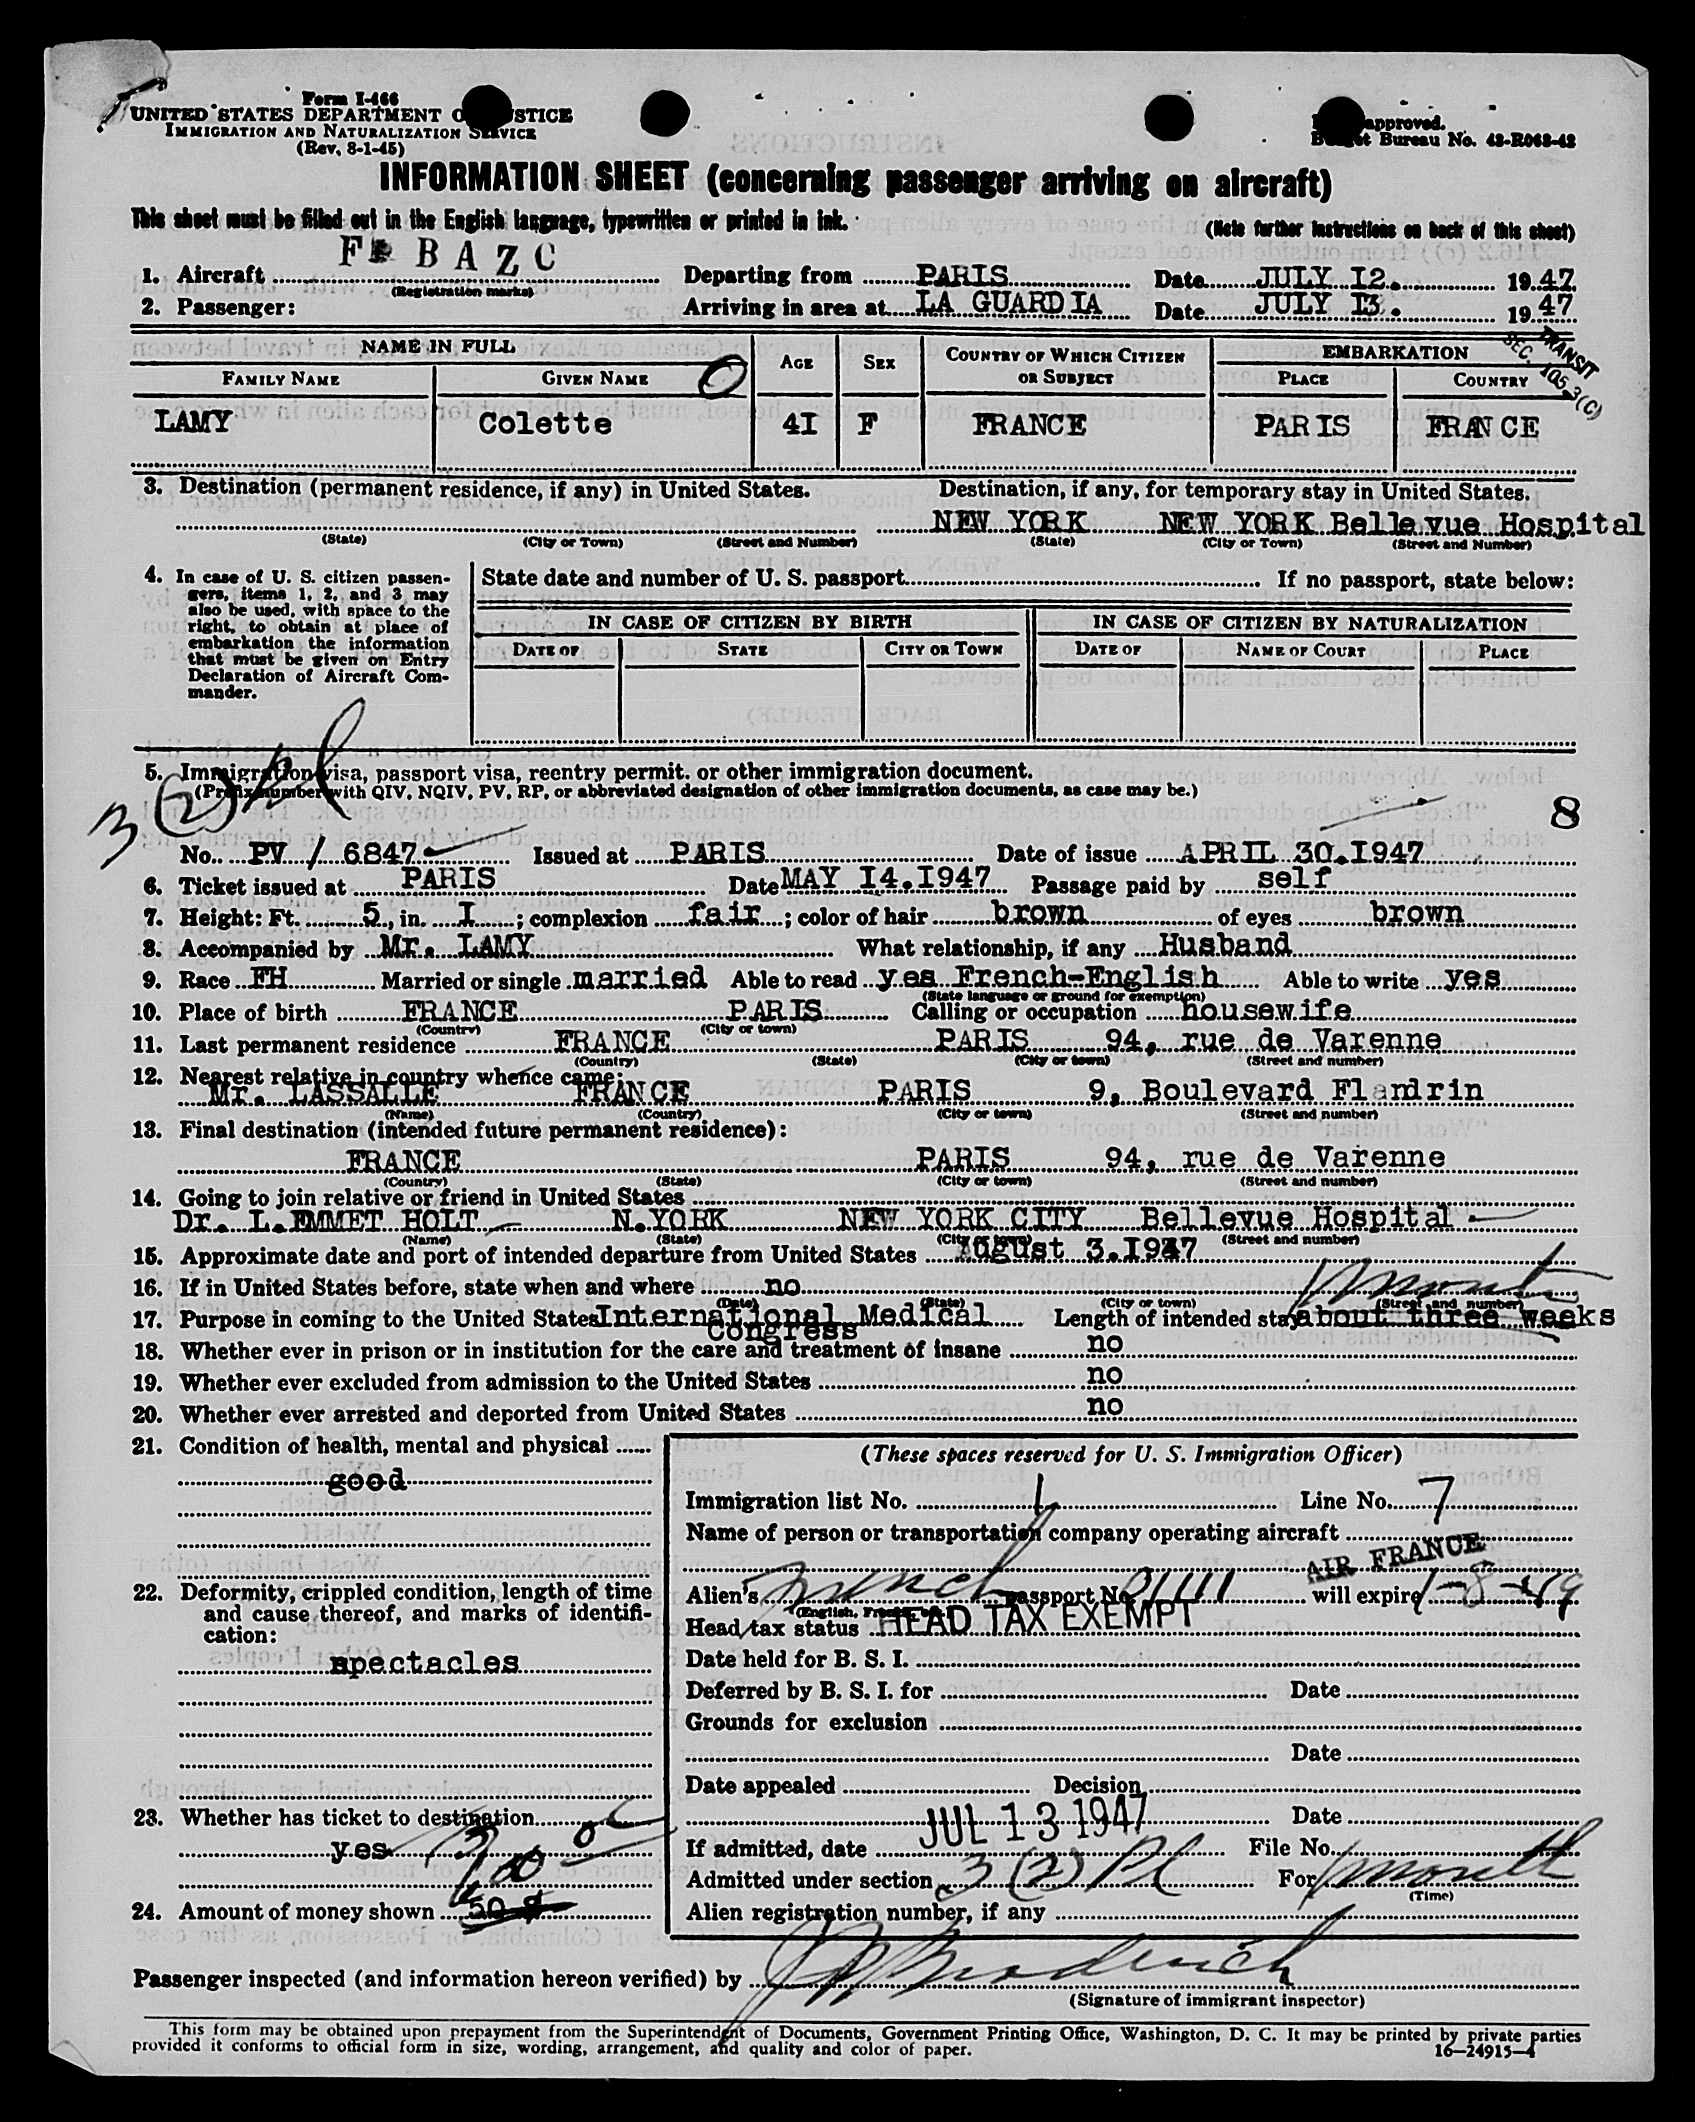 Form I-466
UNITED STATES DEPARTMENT OF JUSTICE
IMMIGRATION AND NATURALIZATION SERVICE
(Rev. 8-1-45)
approved.
Budget Bureau No. 43-R063-42
INFORMATION SHEET (concerning passenger arriving on aircraft)
This sheet must be filled out in the English language, typewritten or printed in ink.
(Note further instructions on back of this sheet)
1. Aircraft F BAZC Departing from PARIS Date JULY I2. 1947
(Registration marks)
2. Passenger: Arriving in area at LA GUARDIA Date JULY I3. 1947
TRANSIT
SEC. 105.3(C)
NAME IN FULL AGE SEX COUNTRY OF WHICH CITIZEN OR SUBJECT EMBARKATION
FAMILY NAME GIVEN NAME PLACE COUNTRY
LAMY Colette 4I F FRANCE PARIS FRANCE
3. Destination (permanent residence, if any) in United States. Destination, if any, for temporary stay in United States.
NEW YORK NEW YORK Bellevue Hospital
(State) (City or Town) (Street and Number) (State) (City or Town) (Street and Number)
4. In case of U. S. citizen passen-
gers, items 1, 2, and 3 may
also be used, with space to the
right, to obtain at place of
embarkation the information
that must be given on Entry
Declaration of Aircraft Com-
mander.
State date and number of U. S. passport If no passport, state below:
IN CASE OF CITIZEN BY BIRTH IN CASE OF CITIZEN BY NATURALIZATION
DATE OF STATE CITY OR TOWN DATE OF NAME OF COURT PLACE
5. Immigration visa, passport visa, reentry permit, or other immigration document.
(Prefix number with QIV, NQIV, PV, RP, or abbreviated designation of other immigration documents, as case may be.)
3 (2) Pl
8
No. PV / 6847 Issued at PARIS Date of issue APRIL 30.I947
6. Ticket issued at PARIS Date MAY I4.I947 Passage paid by self
7. Height: Ft. 5, in. I; complexion fair; color of hair brown of eyes brown
8. Accompanied by Mr. LAMY What relationship, if any Husband
9. Race FH Married or single married Able to read yes French-English Able to write yes
(State language or ground for exemption)
10. Place of birth FRANCE PARIS Calling or occupation housewife
(Country) (City or town)
11. Last permanent residence FRANCE PARIS 94, rue de Varenne
(Country) (State) (City or town) (Street and number)
12. Nearest relative in country whence came:
Mr. LASSALLE FRANCE PARIS 9, Boulevard Flandrin
(Name) (Country) (City or town) (Street and number)
13. Final destination (intended future permanent residence):
FRANCE PARIS 94, rue de Varenne
(Country) (State) (City or town) (Street and number)
14. Going to join relative or friend in United States
Dr. L.EMMET HOLT N.YORK NEW YORK CITY Bellevue Hospital
(Name) (State) (City or town) (Street and number)
15. Approximate date and port of intended departure from United States August 3.I947
16. If in United States before, state when and where no
(Date) (State) (City or town) (Street and number)
1 month
17. Purpose in coming to the United States International Medical Length of intended stay about three weeks
Congress
18. Whether ever in prison or in institution for the care and treatment of insane no
19. Whether ever excluded from admission to the United States no
20. Whether ever arrested and deported from United States no
21. Condition of health, mental and physical
good
22. Deformity, crippled condition, length of time
and cause thereof, and marks of identifi-
cation:
spectacles
23. Whether has ticket to destination
yes
24. Amount of money shown 50 $
(These spaces reserved for U. S. Immigration Officer)
Immigration list No. 1 Line No. 7
Name of person or transportation company operating aircraft
AIR FRANCE
Alien's French passport No. will expire 1-8-49
(English, French, etc.)
Head tax status HEAD TAX EXEMPT
Date held for B. S. I.
Deferred by B. S. I. for Date
Grounds for exclusion
Date
Date appealed Decision
Date
If admitted, date JUL 13 1947 File No.
Admitted under section 3 (2) Pl For 1 month
(Time)
Alien registration number, if any
Passenger inspected (and information hereon verified) by
(Signature of immigrant inspector)
This form may be obtained upon prepayment from the Superintendent of Documents, Government Printing Office, Washington, D. C. It may be printed by private parties
provided it conforms to official form in size, wording, arrangement, and quality and color of paper.
16—24915-4